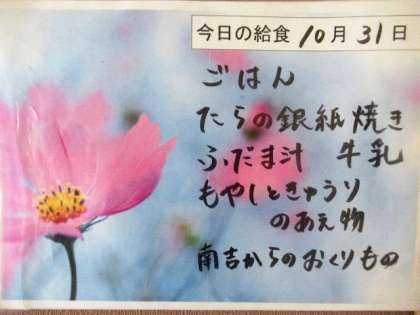 今日の給食 10月 31日
ごはん
たらの銀紙焼き
ふだま汁 牛乳
もやしときゅうり
のあえ物
南吉からのおくりもの